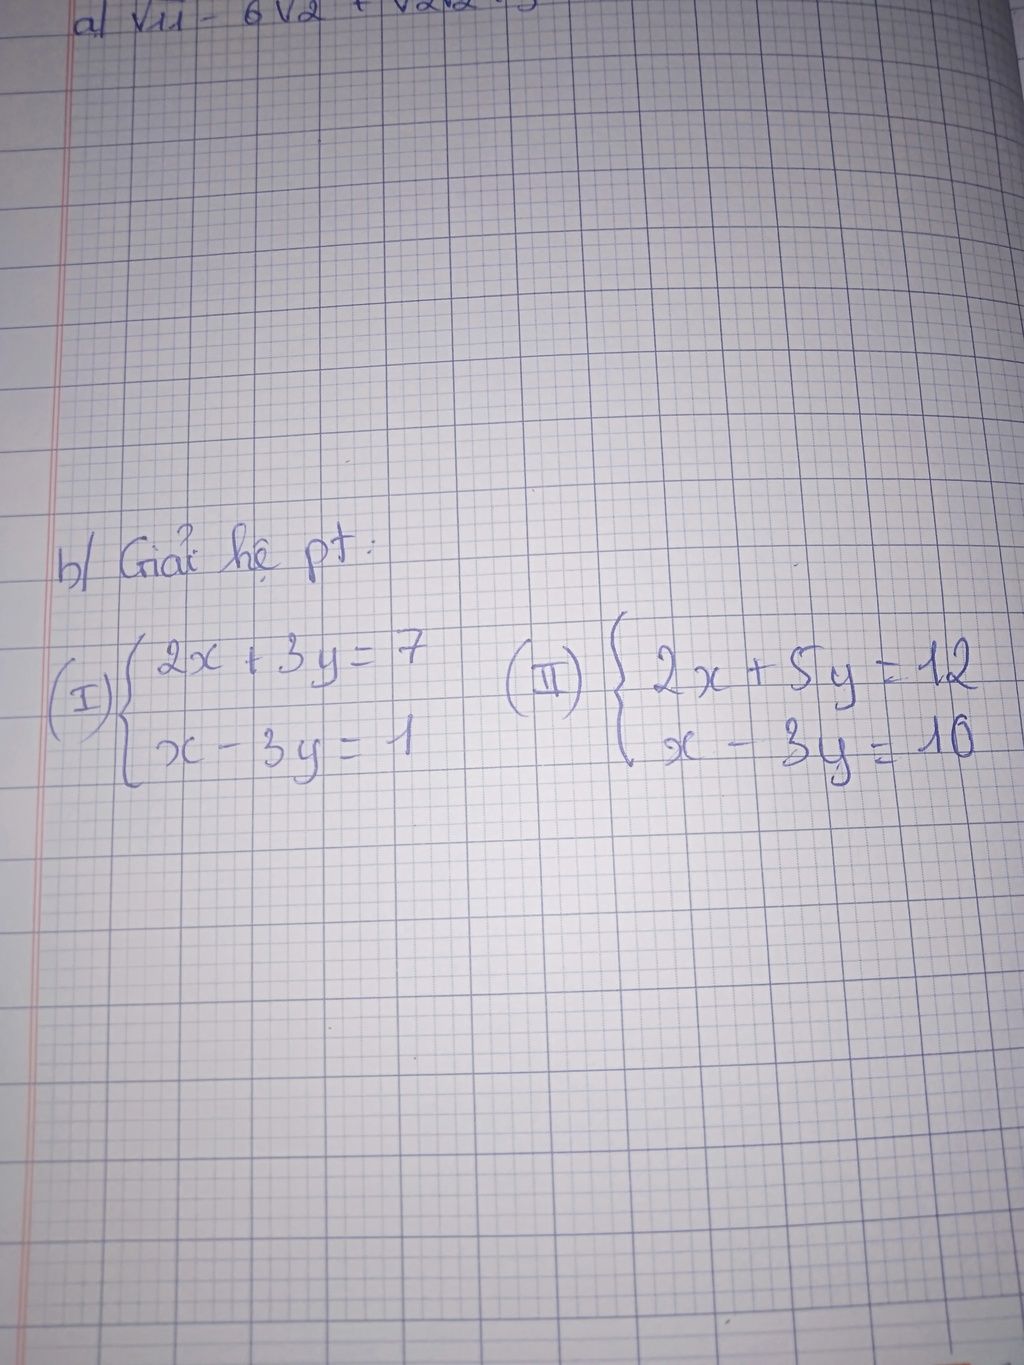 a) √11 - 6√2 +
b) Giải hệ pt:
(I) { 2x + 3y = 7
x - 3y = 1
(II) { 2x + 5y = 12
x - 3y = 10